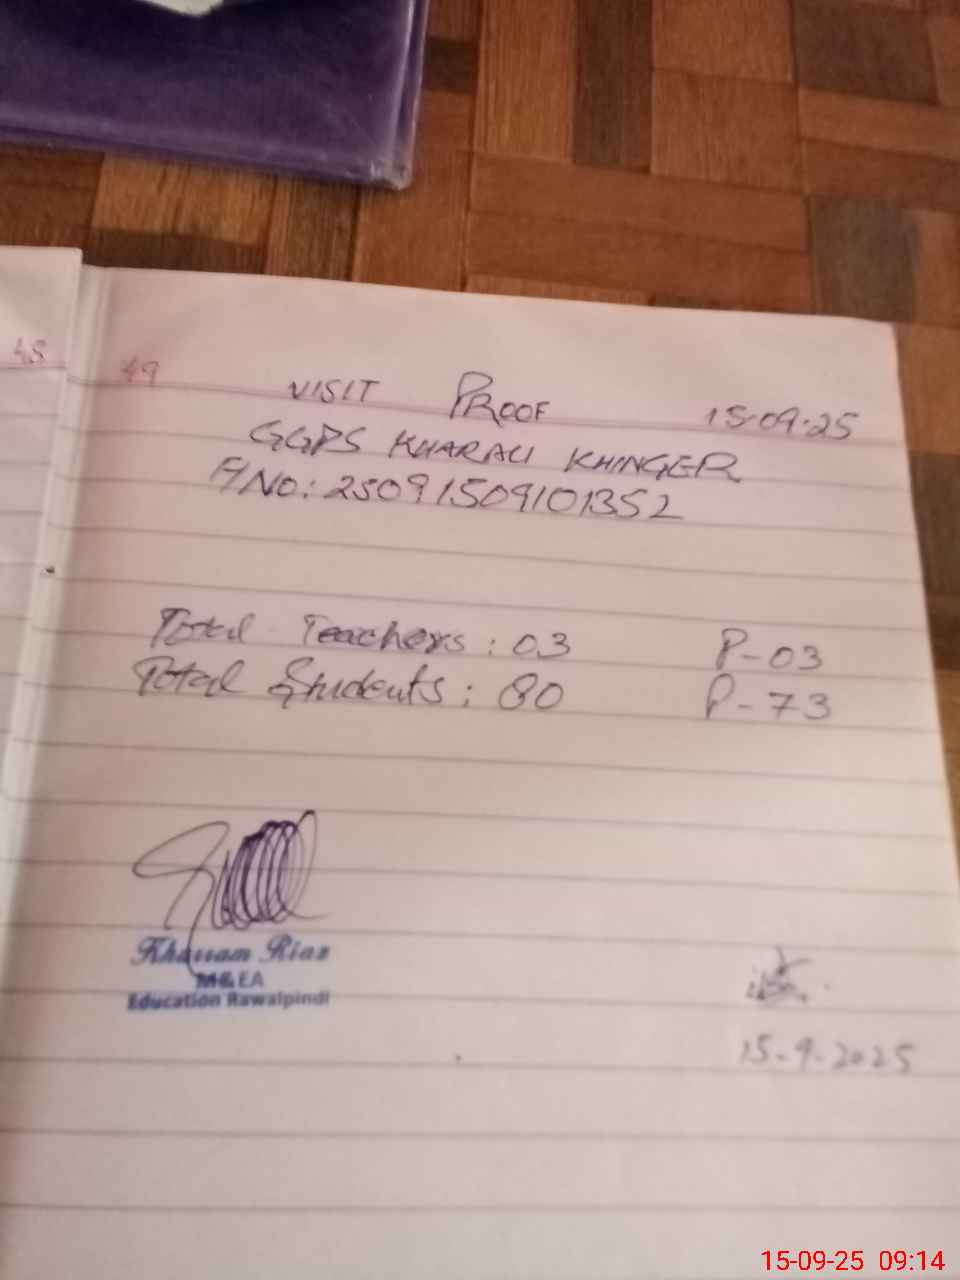 48
49
VISIT PROOF 15-09-25
GGPS KHARALI KHINGER
A/NO: 25091509101352
Total Teachers: 03 P-03
Total Students: 80 P-73
Khurram Riaz
M&EA
Education Rawalpindi
15-9-2025
15-09-25 09:14